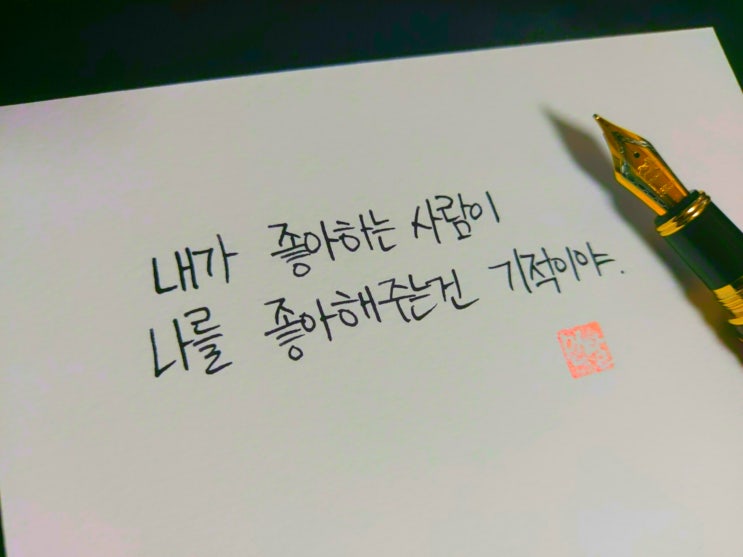 내가 좋아하는 사람이
나를 좋아해주는건 기적이야.